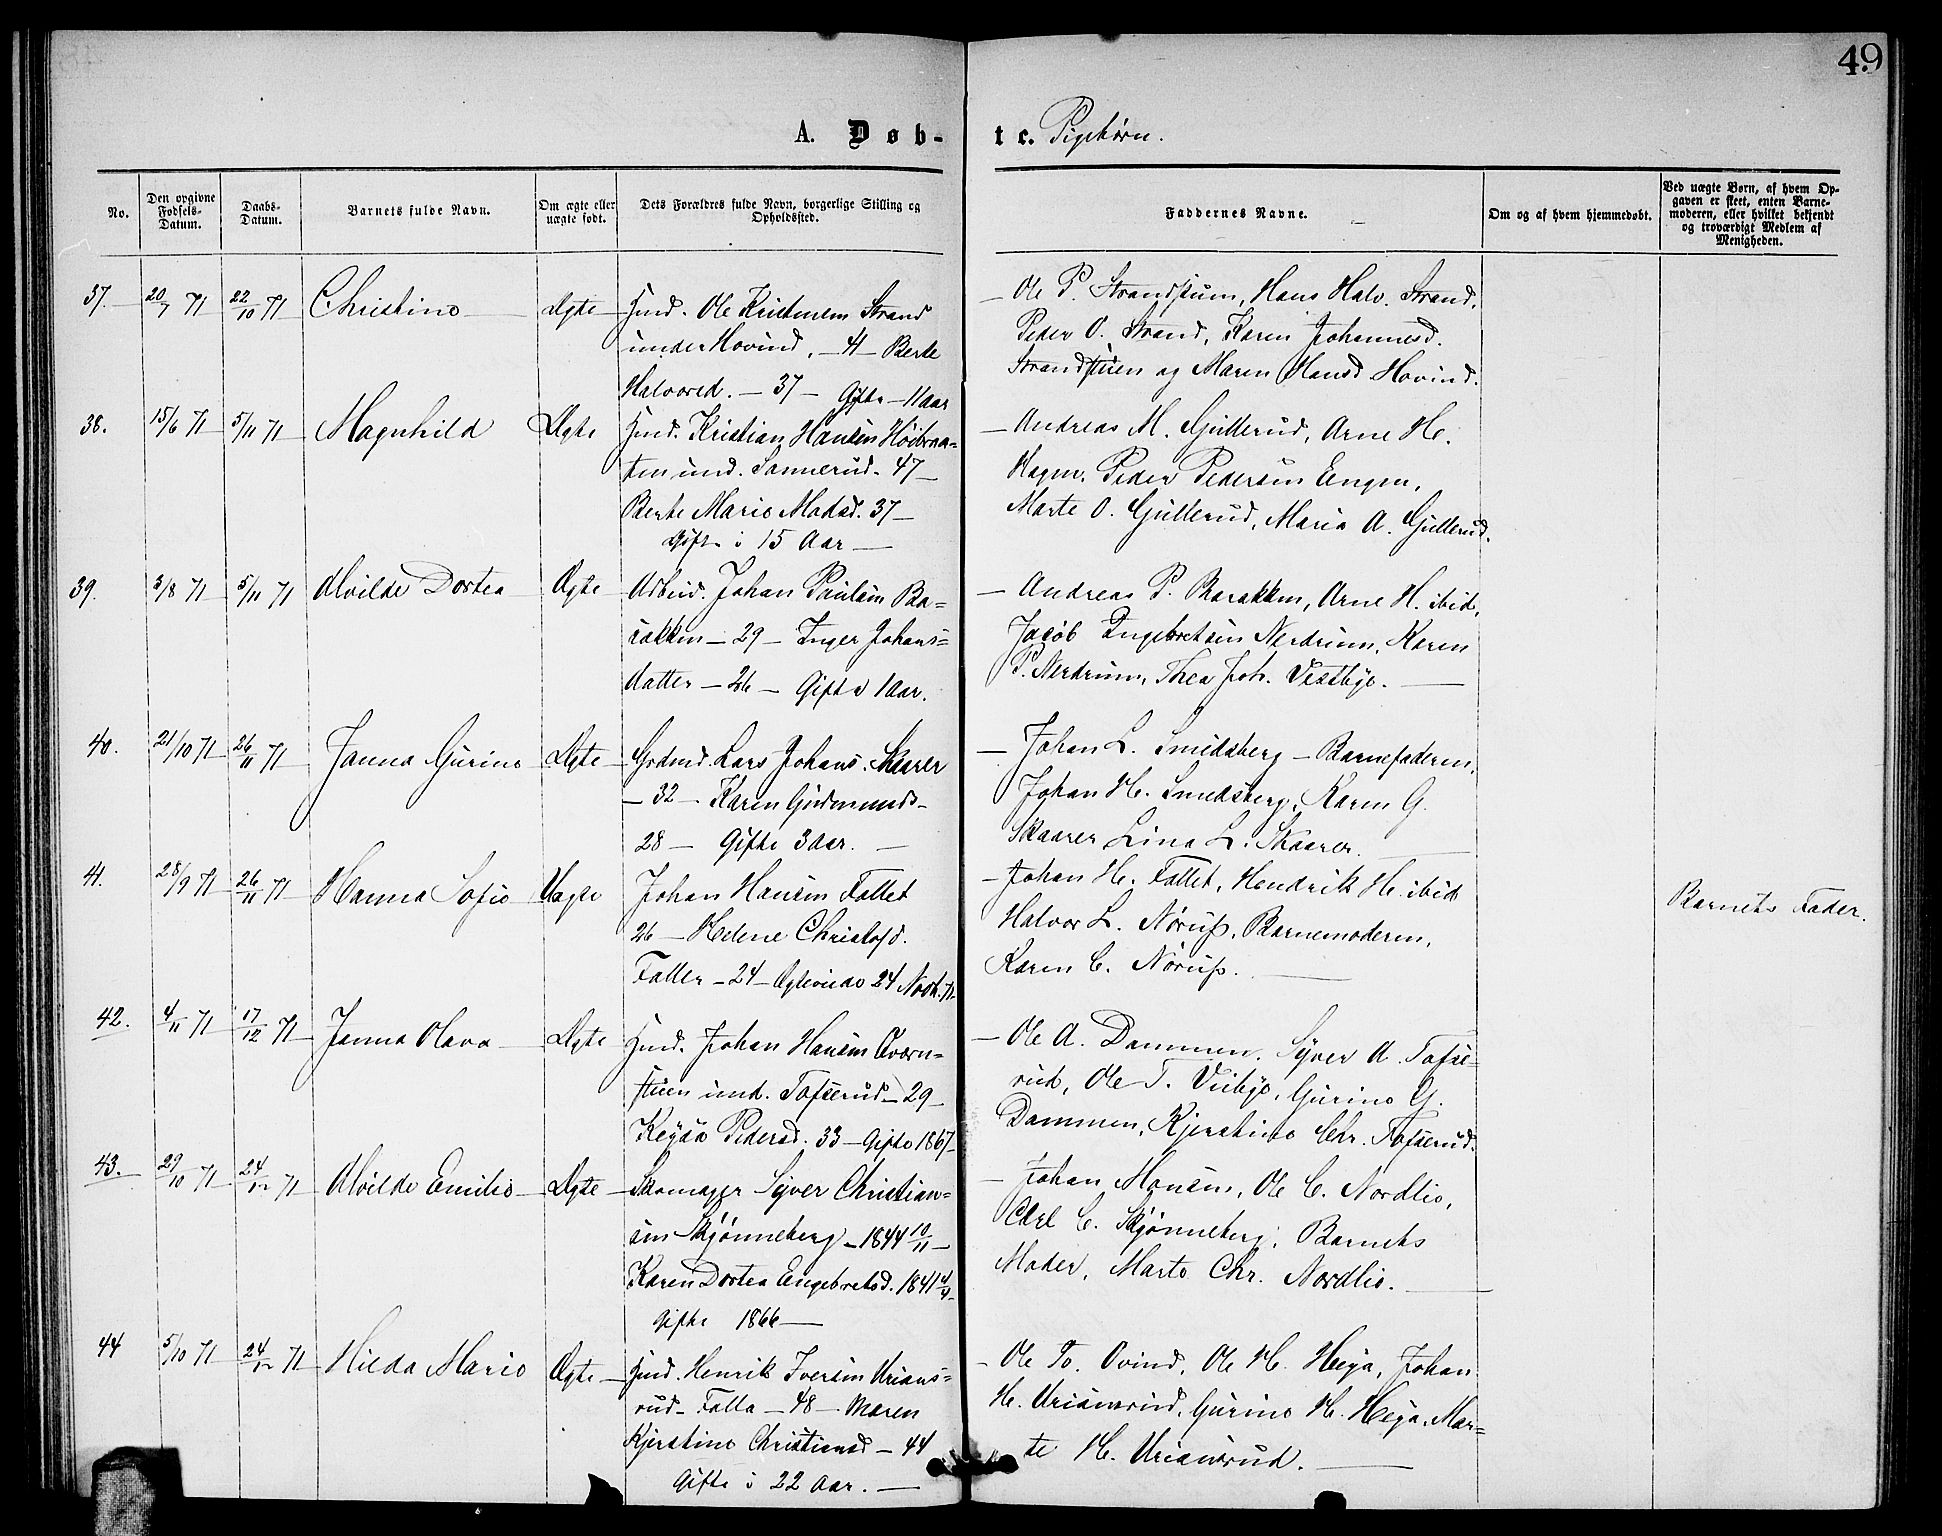 49
A. Døb-
te. Pigebørn.
No.
Den opgivne Fødsels-Datum.
Daabs-Datum.
Barnets fulde Navn.
Om ægte eller uægte født.
Dets Forældres fulde Navn, borgerlige Stilling og Opholdssted.
Faddernes Navne.
Om og af hvem hjemmedøbt.
Ved uægte Børn, af hvem Opgaven er skeet, enten Barnemoderen, eller hvilket bekjendt og troværdigt Medlem af Menigheden.
37. 20/7 71 22/10 71 Christine Ægte Hmd. Ole Kristensen Strand
under Hovind, 41 Berte
Halvorsd. 37 Gifte 11 aar
Ole P. Strandstuen, Hans Halv. Strand,
Peder O. Strand, Karen Johannesd.
Strandstuen og Maren Hansd Hovind.
38. 15/6 71 5/11 71 Magnhild Ægte Hmd. Kristian Hansen Høibraa-
ten und. Sannerud. 47
Berte Marie Madsd. 37
Gifte i 15 Aar
Andreas M. Gullerud, Arne H.
Hagen, Peder Pedersen Engen,
Marte O. Gullerud, Maria A. Gullerud.
39. 3/8 71 5/11 71 Alvilde Dortea Ægte Arbeid. Johan Paulsen Ba-
rakken 29 Inger Johans-
datter 26 Gifte 1 Aar.
Andreas P. Barakken, Arne H. ibid,
Jacob Engebretsen Nerdrum, Karen
P. Nerdrum, Thea Joh. Vestbye.
40. 21/10 71 26/11 71 Janna Gurine Ægte Grdmd. Lars Johans. Skaarer
32 Karen Gudmunds-
28 Gifte 3 Aar.
Johan L. Smedsberg Barnefaderen,
Johan H. Smedsberg, Karen G.
Skaarer Lina L. Skaarer.
41. 28/9 71 26/11 71 Hanna Sofie Uægte Johan Hansen Fallet
26 Helene Christofd.
Fallet 24 Ægteviede 24 Novb. 71
Johan H. Fallet, Hendrik H. ibid
Halvor L. Nørup, Barnemoderen,
Karen C. Nørup.
Barnets Fader.
42. 4/11 71 17/12 71 Janna Olava Ægte Hmd. Johan Hansen Qværn-
stuen und. Tofserud 29
Keysa Pedersd. 33 Gifte 1867
Ole A. Dammen, Syver A. Tofse-
rud, Ole T. Viibye, Gurine G.
Dammen, Kjerstine Chr. Tofserud.
43. 29/10 71 24/12 71 Alvilde Emilie Ægte Skomager Syver Christian-
sen Skjønneberg 1844 10/11
Karen Dortea Engebretsd. 1841 4/4
Gifte 1866
Johan Hansen, Ole C. Nordlie,
Carl C. Skjønneberg, Barnets
Moder, Marte Chr. Nordlie.
44 5/10 71 24/12 71 Hilda Marie Ægte Hmd. Henrik Iversen Urians-
rud Falla 48 Maren
Kjerstine Christiansd 44
Gifte i 22 Aar.
Ole To. Ovind, Ole H. Heya, Johan
H. Uriansrud, Gurine H. Heya, Mar-
te H. Uriansrud.